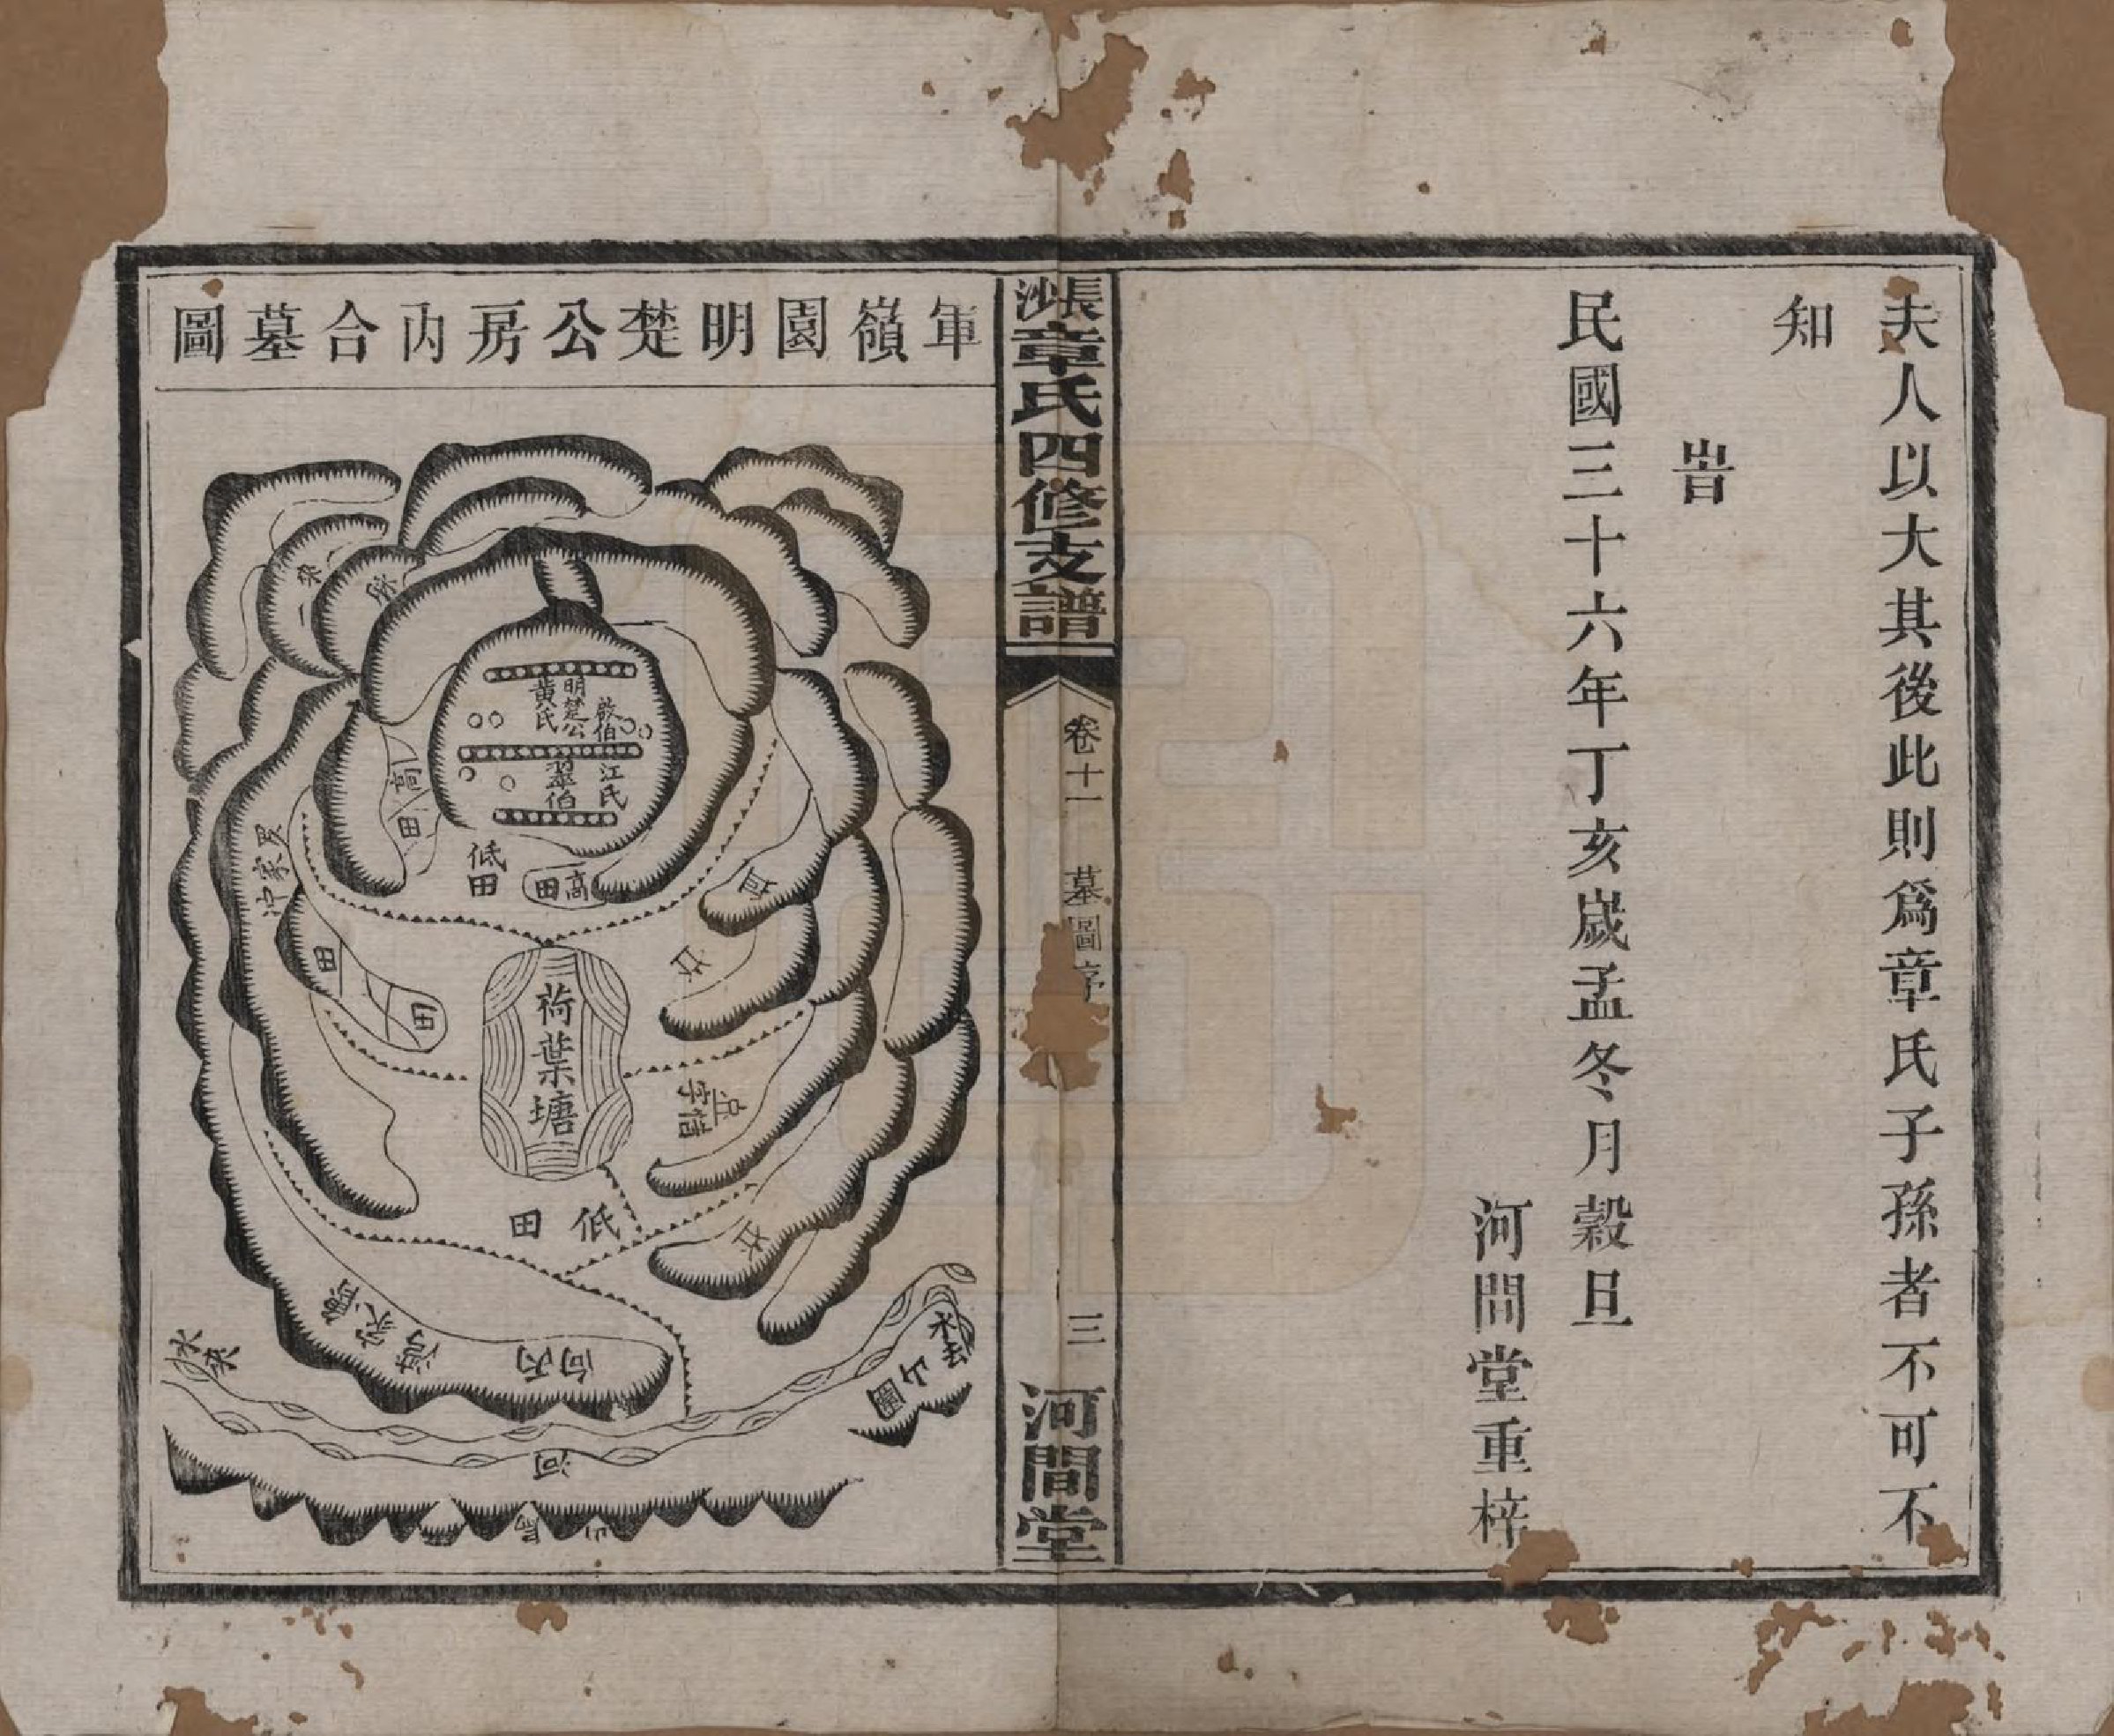 夫人以大其後此則爲章氏子孫者不可不
知
旹
民國三十六年丁亥歲孟冬月穀旦
河間堂重梓
漲沙章氏四修支譜
卷十一
墓圖序
三
河間堂
軍嶺園明楚公房内合墓圖
啟伯
明楚公
黃氏
江氏
翠伯
高田
低田
高田
田
田
荷葉塘
低田
向丙
河
水來